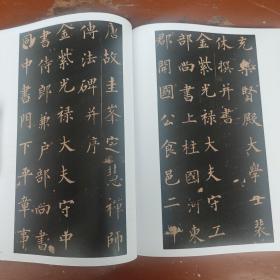 唐故圭峯定慧禪師
傳法碑并序
金紫光祿大夫守中
書侍郎兼戶部尚書
同中書門下平章事
充集賢殿大學士裴
休撰并書
金紫光祿大夫守工
部尚書上柱國河東
郡開國公食邑二千